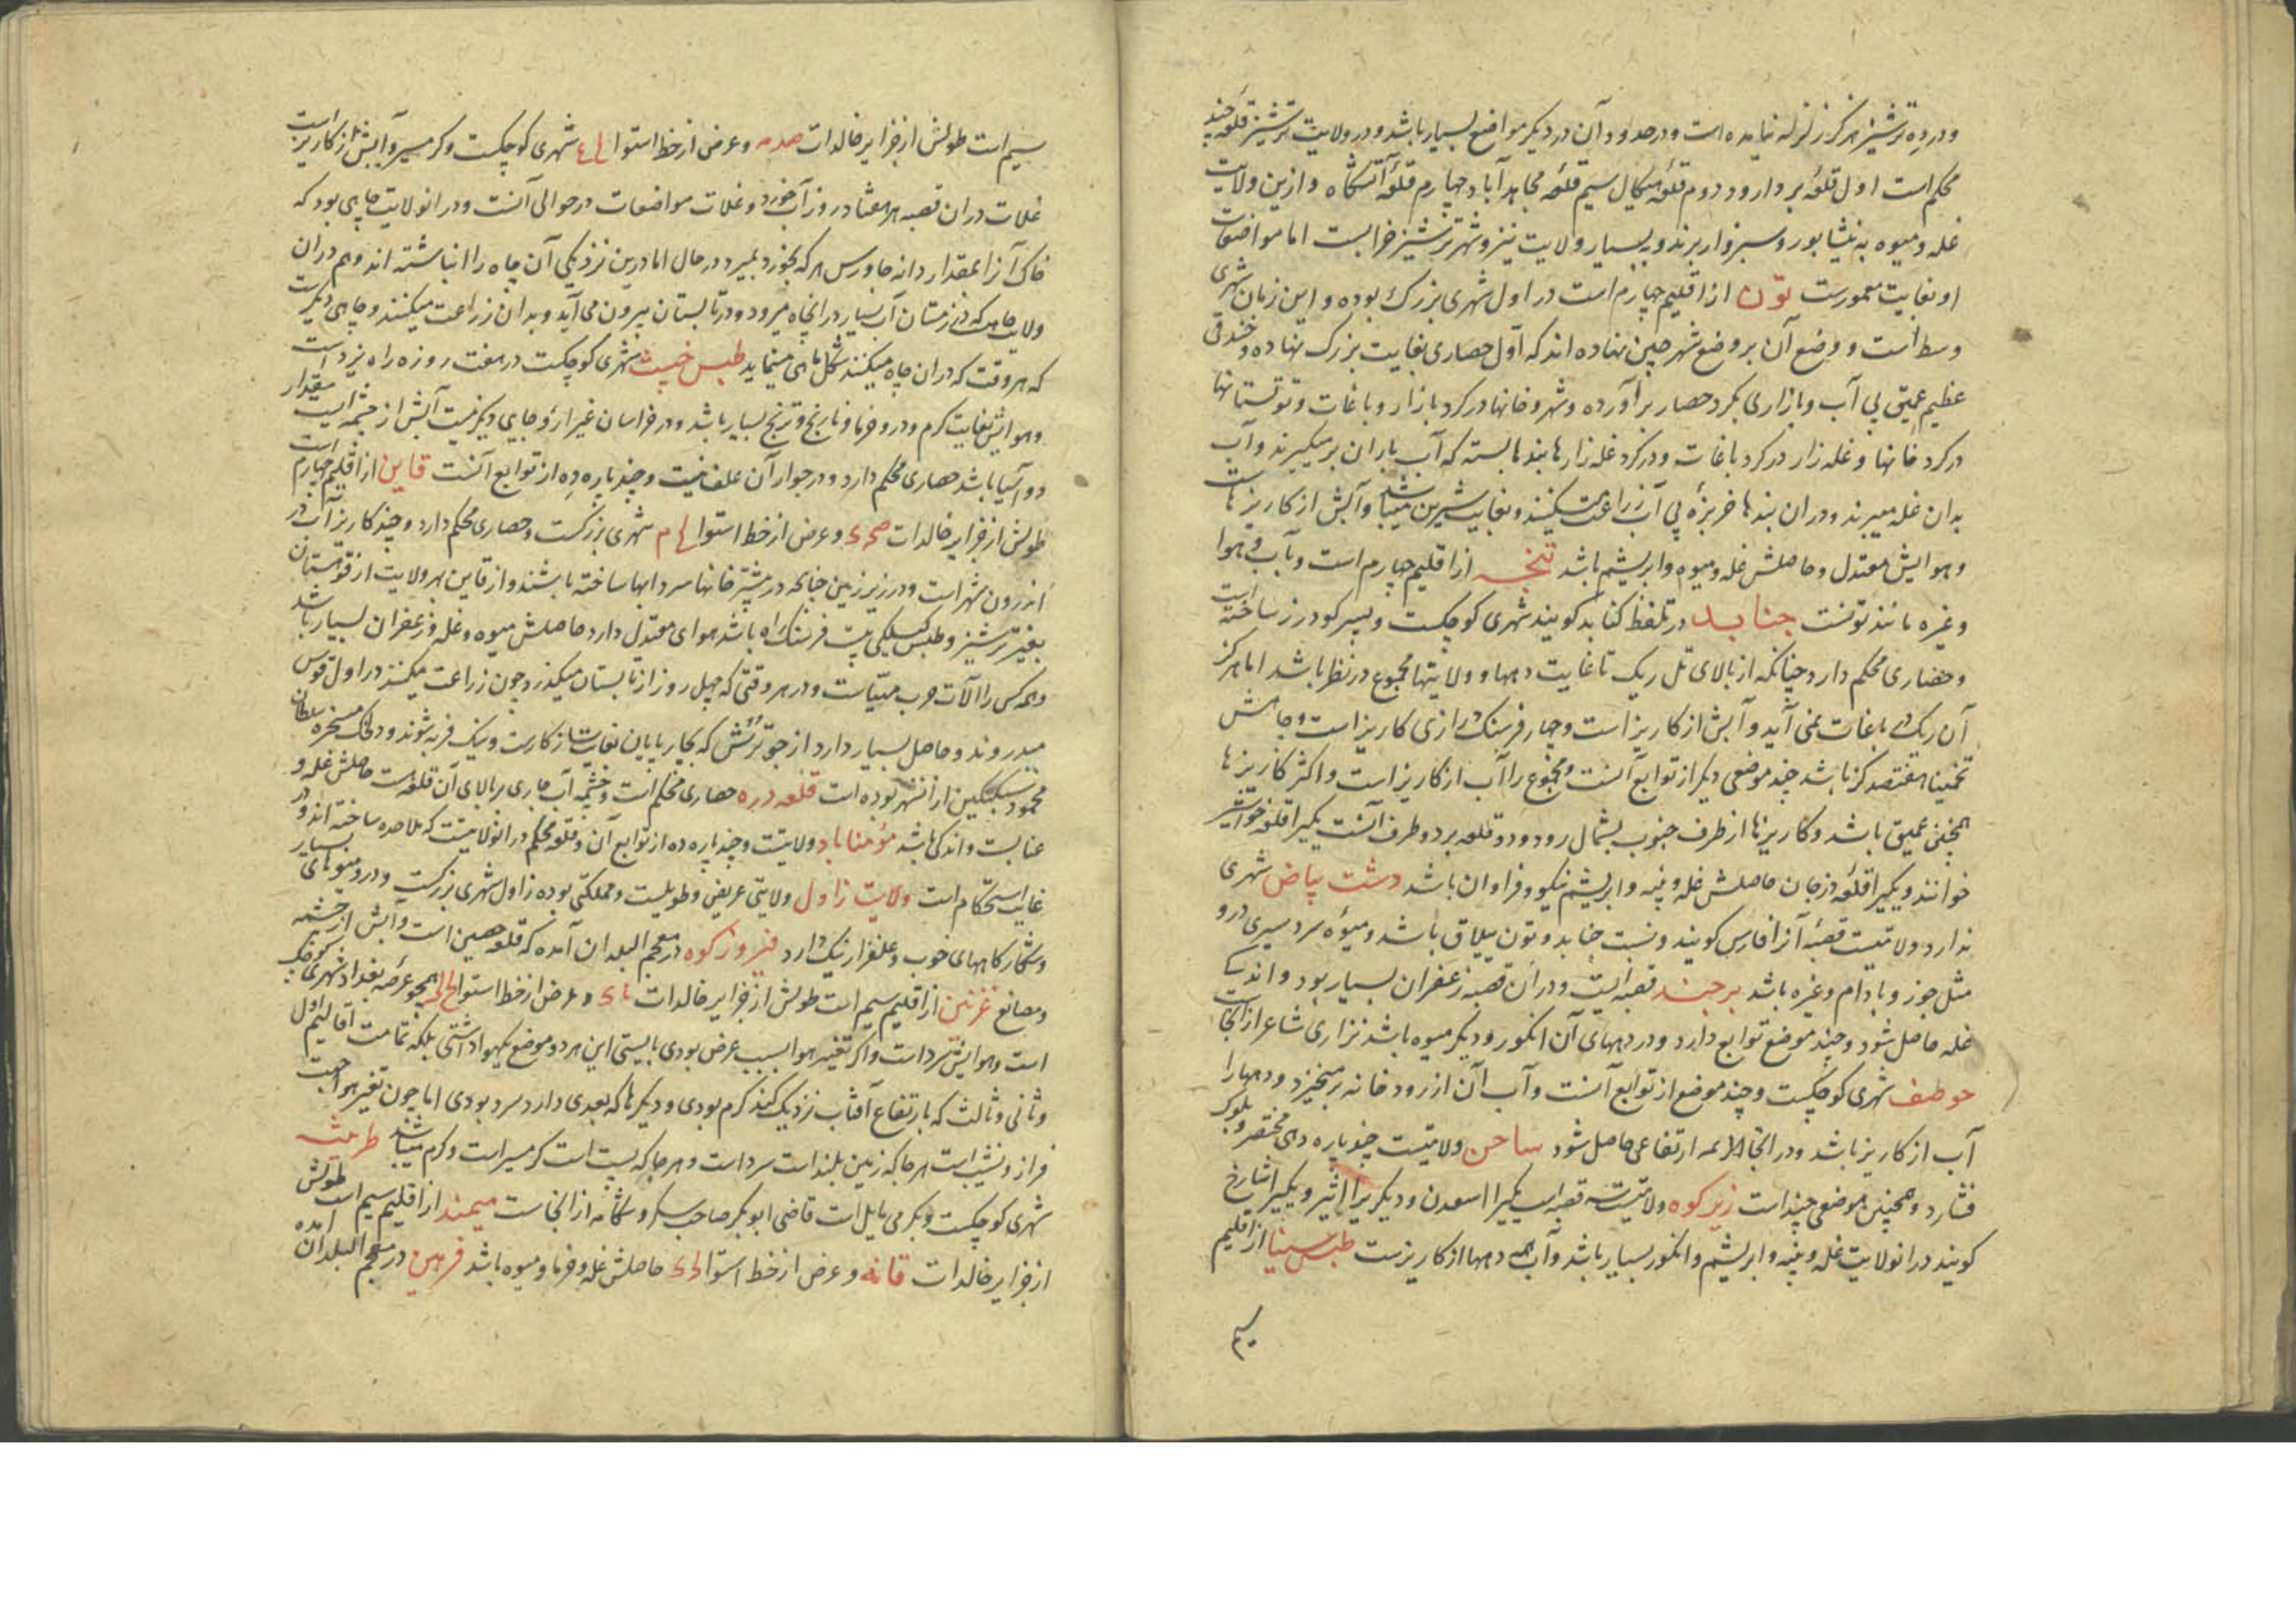 و در ده ترشیز هرگز زلزله نیامده است و در حدود آن در دیگر مواضع بسیار باشد و در ولایت ترشیز قلعه چند
محکم است اول قلعه بردارود دوم قلعه میکال سیم قلعه مجاهدآباد چهارم قلعه آتشگاه و ازین ولایت
غله و میوه به نیشابور و سبزوار برند و به بسیار ولایت نیز و شهر ترشیز خرابست اما مواضعات
او بغایت معمورست تون از اقلیم چهارم است در اول شهری بزرگ بوده و این زمان شهری
وسط است و وضع آن بر وضع شهر چین نهاده اند که اول حصاری بغایت بزرگ نهاده و خندقی
عظیم عمیق بی آب و بازاری بگرد حصار برآورده و شهر و خانها در گرد بازار و باغات و توتستانها
در گرد خانها و غله زار در گرد باغات و در گرد غله زارها بندها بسته که آب باران بر میگیرند و آب
بدان غله میبرند و در آن بندها خربزه بی آب زراعت میکنند و بغایت شیرین میباشد و آبش از کاریزهاست
و هوایش معتدل و حاصلش غله و میوه و ابریشم باشد تنجه از اقلیم چهارم است و بآب و هوا
و غیره مانند تونست جنابد در تلفظ گنابد گویند شهری کوچکست و پسر گودرز ساخته است
و حصاری محکم دارد چنانکه از بالای تل ریگ تا غایت دهها و ولایتها مجموع در نظر باشد اما هرگز
آن ریگ در باغات نمی آید و آبش از کاریز است و چهار فرسنگ درازی کاریز است و چاهش
تخمینا هفتصد گز باشد چند موضعی دیگر از توابع آنست و مجموع را آب از کاریز است و اکثر کاریزها
همچنین عمیق باشد و کاریزها از طرف جنوب بشمال رود و دو قلعه بر دو طرف آنست یکی را قلعه خواشیر
خوانند و یکی را قلعه درجان حاصلش غله و پنبه و ابریشم نیکو و فراوان باشد دشت بیاض شهری
ندارد ولایتیست قصبه آنرا فارس گویند و نسبت جنابد و تون ییلاق باشد و میوه سردسیری درو
مثل جوز و بادام و غیره باشد برجند قصبه ایست و در آن قصبه زعفران بسیار بود و اندک
غله حاصل شود و چند موضع توابع دارد و در دههای آن انگور و دیگر میوه باشد نزاری شاعر از آنجاست
خوطف شهری کوچکست و چند موضع از توابع آنست و آب آن از رودخانه بر میخیزد و دهها را
آب از کاریز باشد و در آنجا همه ارتفاعی حاصل شود ساخن ولایتیست چند پاره دهی مختصر و بلوک
فشارد و همچنین موضعی چند است زیرکوه ولایتیست سه قصبه است یکی را اسعدن و دیگر را اثیر و یکی را شارخ
گویند در آن ولایت غله و پنبه و ابریشم و انگور بسیار باشد و آب همه دهها از کاریزست طبس سینا از اقلیم
سیم
سیم است طولش از جزایر خالدات صدمه و عرض از خط استوا لح ع شهری کوچکست و گرمسیر و آبش از کاریز است
غلات در آن قصبه هر هفتاد روز آب خورد و غلات مواضعات در حوالی آنست و در آن ولایت چاهی بود که
خاک آنرا بمقدار دانه جاورس هر که بخورد بمیرد در حال اما درین نزدیکی آن چاه را انباشته اند و هم در آن
ولایت چاهیست که در زمستان آب بسیار در آن چاه میرود و در تابستان بیرون می آید و بدان زراعت میکنند و چاهی دیگرست
که هر وقت که در آن چاه میکنند شکل ماهی مینماید طبس خبیث شهری کوچکست در هفت روزه راه یزد است
و هوایش بغایت گرم و درو خرما و نارنج و ترنج بسیار باشد و در خراسان غیر ازو جایی دیگر نیست آبش از چشمه ایست مقدار
دو آسیا باشد حصاری محکم دارد و در جوار آن علف نیست و چند پاره ده از توابع آنست قاین از اقلیم چهارم است
طولش از جزایر خالدات صح ک و عرض از خط استوا لح م شهری بزرگست و حصاری محکم دارد و چند کاریز آب در
اندرون شهر است و در زیر زمین چنانکه در بیشتر خانها سردابها ساخته باشند و از قاین بهر ولایت از قوهستان
بغیر ترشیز و طبس گیلکی بیست فرسنگ راه باشد هوای معتدل دارد حاصلش میوه و غله و زعفران بسیار باشد
و همه کس را آلات حرب مهیاست و در هر وقتی که چهل روز از تابستان میگذرد چون زراعت میکنند در اول قوس
میدروند و حاصل بسیار دارد از جو ترش که بچارپایان بغایت سازگارست و نیک فربه شوند و دلخک مسخره سلطان
محمود سبکتکین از آن شهر بوده است قلعه دره حصاری محکم است و چشمه آب جاری بر بالای آن قلعه است حاصلش غله و
عنابست و اندکی باشد مؤمناباد ولایتیست و چند پاره ده از توابع آن و قلعه محکم در آن ولایتست که ملاحده ساخته اند و در
غایت استحکام است ولایت زاول ولایتی عریض و طویلست و مملکتی بوده زاول شهری بزرگست و درو میوهای بسیار
و شکارگاههای خوب و علفزار نیک دارد فیروزکوه در معجم البلدان آمده که قلعه حصین است و آبش از چشمه
و مصانع غزنین از اقلیم سیم است طولش از جزایر خالدات و عرض از خط استوا همچو عرصه بغداد شهری کوچک
است و هوایش سرد است و اگر تغییر هوا بسبب عرض بودی بایستی این هر دو موضع یکهوا داشتی بلکه تمامت اقالیم اول
و ثانی و ثالث که بارتفاع آفتاب نزدیک کنند گرم بودی و دیگرها که بعدی دارد سرد بودی اما چون تغیر هوا بجهت
فراز و نشیب است هر جا که زمین بلند است سرد است و هر جا که پست است گرمسیر است و گرم میباشد طریثه
شهری کوچکست و بگرمی مایل است قاضی ابوبکر صاحب سکر و شگانه از آنجاست میمند از اقلیم سیم است طولش
از جزایر خالدات قانه و عرض از خط استوا لح ک حاصلش غله و خرما و میوه باشد فرهین در معجم البلدان آمده